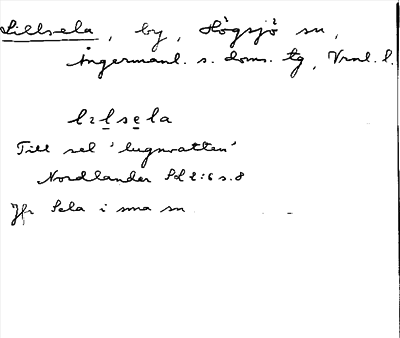 Lillsela, by, Högsjö sn,
Ångermanl. s. doms. tg, Vrnl. l.
lılsela
Till sel 'lugnvatten'
Nordlander Sd 2:6 s. 8
Jfr Sela i sma sn